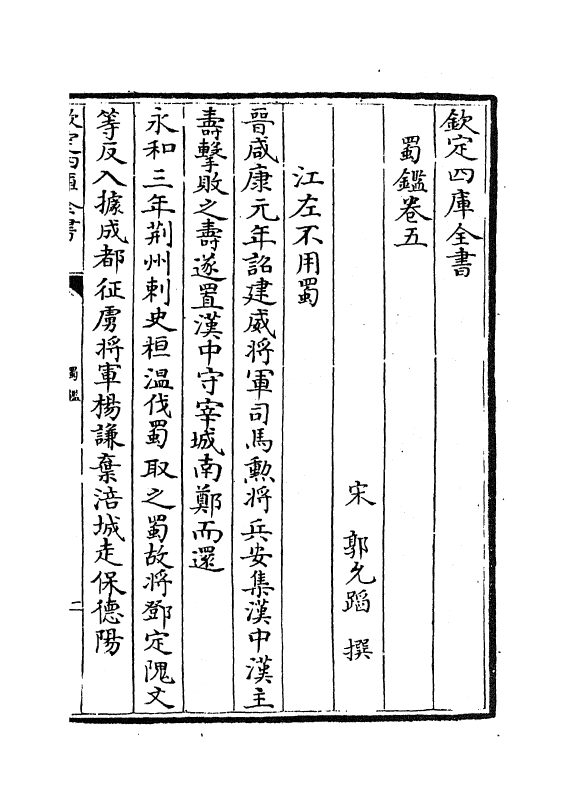 欽定四庫全書
蜀鑑卷五
宋 郭允蹈 撰
江左不用蜀
晉咸康元年詔建威將軍司馬勲將兵安集漢中漢主
壽擊敗之壽遂置漢中守宰城南鄭而還
永和三年荆州刺史桓温伐蜀取之蜀故將鄧定隗文
等反入據成都征虜將軍楊謙棄涪城走保德陽
欽定四庫全書
蜀鑑